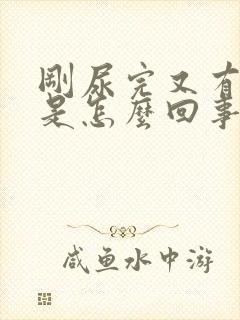 剛尿完又有
是怎麼回事
咸鱼水中游